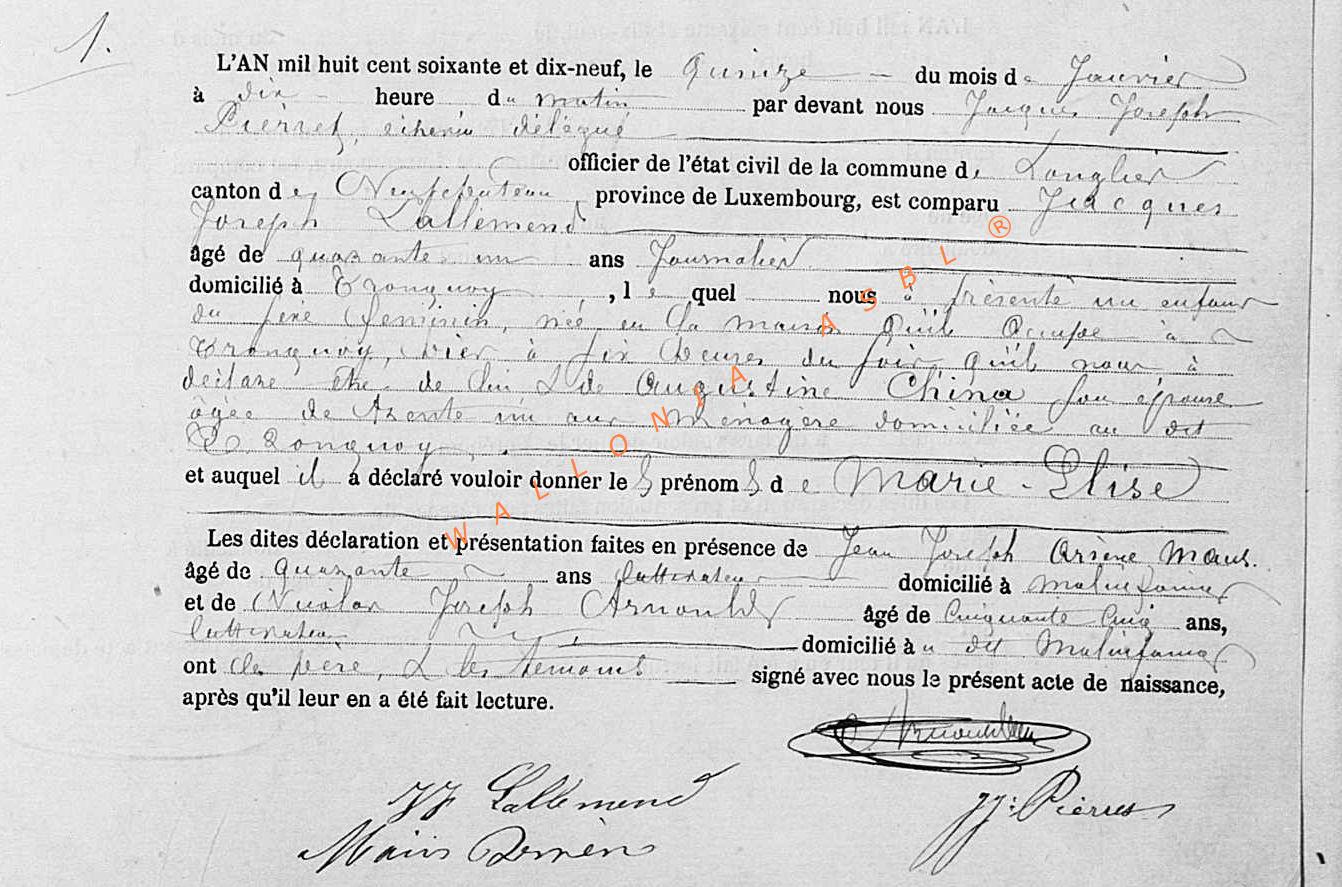 1.
L'AN mil huit cent soixante et dix-neuf, le quinze du mois de Janvier
à dix heure du matin par devant nous Jacques Joseph
Pierret, échevin délégué
officier de l'état civil de la commune de Longlier
canton de Neufchateau province de Luxembourg, est comparu Jacques
Joseph Lallemend
âgé de quarante un ans Journalier
domicilié à Tronquoy, le quel nous à présenté un enfant
du sexe feminin, née en la maison qu'il occupe à
Tronquoy, hier à six heures du soir qu'il nous à
déclaré être de lui & de Augustine China son épouse
âgée de trente un ans ménagère domiciliée au dit
Tronquoy
et auquel il a déclaré vouloir donner les prénoms de Marie-Elise
Les dites déclaration et présentation faites en présence de Jean Joseph Arsène Maus
âgé de quarante ans cultivateur domicilié à Molinfaing
et de Nicolas Joseph Arnould âgé de cinquante cinq ans,
cultivateur domicilié à u dit Molinfaing
ont le père, & les témoins signé avec nous le présent acte de naissance,
après qu'il leur en a été fait lecture.
JJ Lallemend
JJ: Pierret
WALLONIA ASBL ®